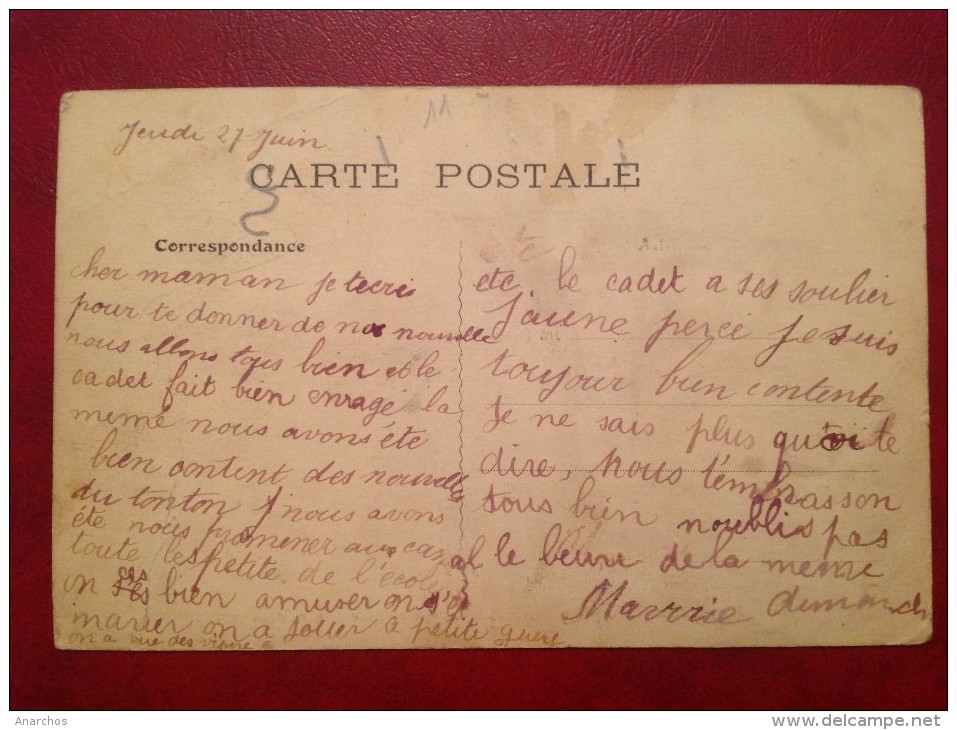 11
Jeudi 27 Juin
CARTE POSTALE
Correspondance
cher maman je tecris
pour te donner de nos nouvelle
nous allons tous bien et le
cadet fait bien enragé la
memé nous avons été
bien content des nouvelles
du tonton J nous avons
été nous promener au
toute les petite de l'école
on ses bien amuser on
marier on a jouer a petite guerre
on a vue des vipère a
etc le cadet a ses soulier
jaune percé Je suis
toujour bien contente
Je ne sais plus quoi te
dire, nous t'embrasson
tous bien noublis pas
le beure de la meme
Marrie dimanche
Anarchos
www.delcampe.net